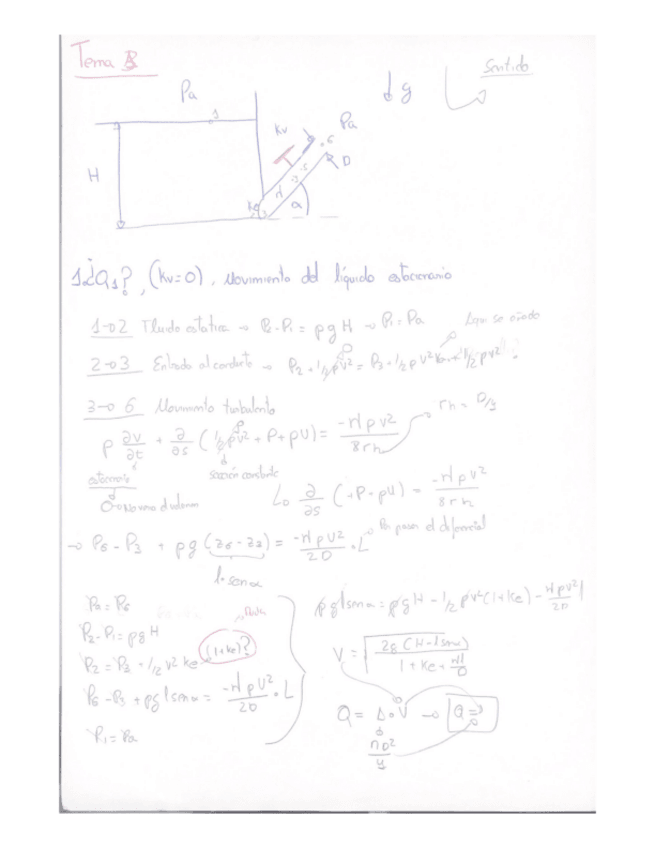 Tema B
Sentido
Pa
↓g
1
Kv
Pa
6
D
H
5
3
λl
Ke
α
1 ¿Q1?, (Kv=0), Movimiento del líquido estacionario
1→2 Fluido estatica → P2-P1 = ρgH → P1 = Pa
2→3 Entrada al conducto → P2 + 1/2ρv² = P3 + 1/2ρv²Ke + 1/2ρv²
3→6 Movimiento turbulento
rh = D/4
ρ ∂v/∂t + ∂/∂s (1/2ρv² + P + ρU) = -λρv²/8rh
estacionario
sección constante
↳ ∂/∂s (+P+ρU) = -λρv²/8rh
→ P6 - P3 + ρg (z6 - z3) = -λρv²/2D · L
l·senα
Pa = P6
P2-P1 = ρgH
P2 = P3 + 1/2 v² Ke (1+Ke)?
P6 - P3 + ρg l senα = -λρv²/2D · L
P1 = Pa
ρg l senα = ρgH - 1/2ρv²(1+Ke) - λρv²l/2D
V = √(2g(H-lsenα) / (1+Ke+λl/D))
Q = A·V → Q =
πD²/4